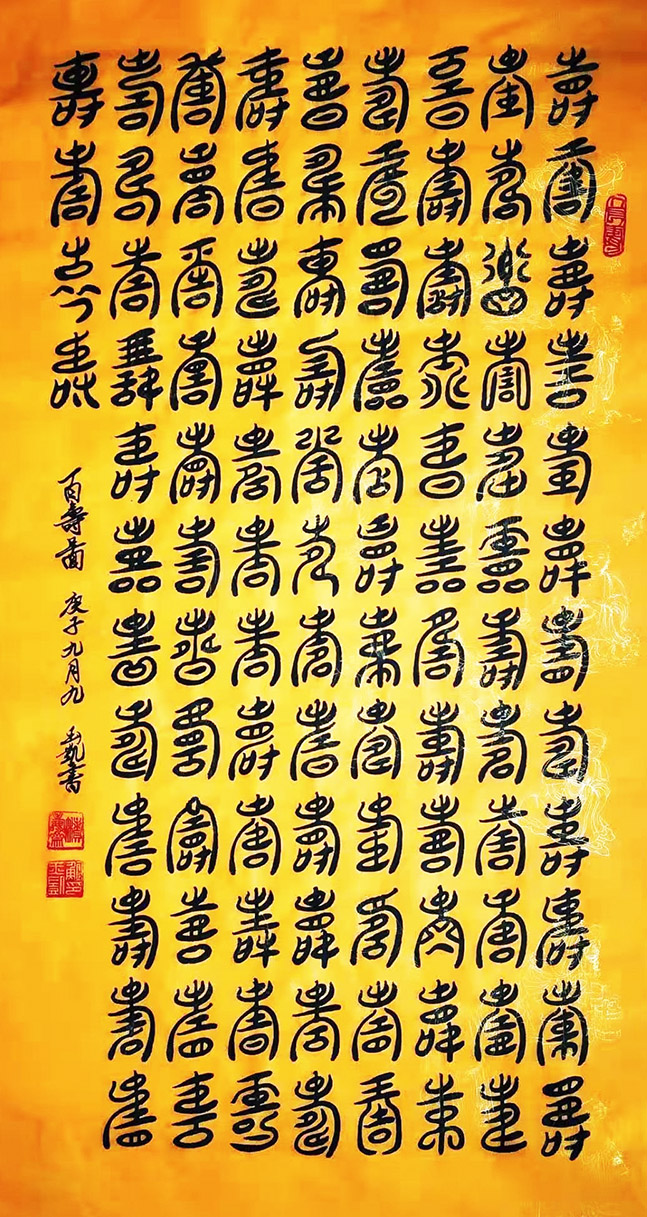 壽壽壽壽壽壽壽壽壽壽壽壽
壽壽壽壽壽壽壽壽壽壽壽壽
壽壽壽壽壽壽壽壽壽壽壽壽
壽壽壽壽壽壽壽壽壽壽壽壽
壽壽壽壽壽壽壽壽壽壽壽壽
壽壽壽壽壽壽壽壽壽壽壽壽
壽壽壽壽壽壽壽壽壽壽壽壽
壽壽壽壽壽壽壽壽壽壽壽壽
壽壽壽壽
百壽圖 庚子九月九 玉凱書